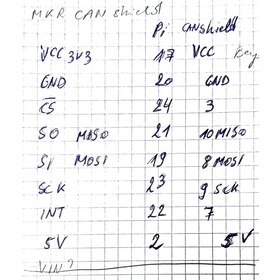 MKR CAN shield
Pi CAN shield
VCC 3V3 17 VCC
GND 20 GND
CS 24 3
SO MISO 21 10 MISO
SI MOSI 19 8 MOSI
SCK 23 9 SCK
INT 22 7
5V 2 5V
VIN?